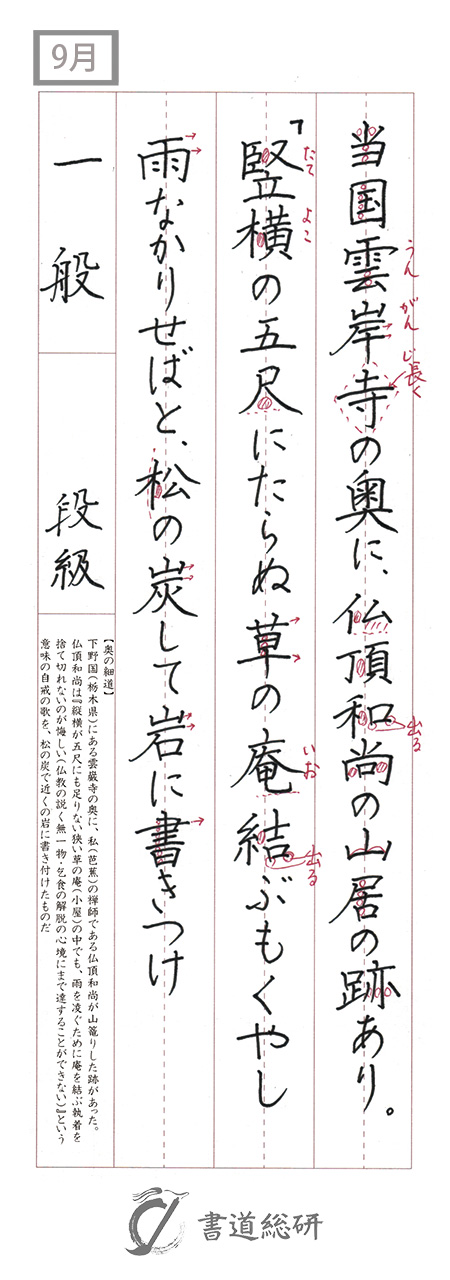 9月
当国雲岸寺の奥に、仏頂和尚の山居の跡あり。
うん がん じ 長く
出る
「竪横の五尺にたらぬ草の庵結ぶもくやし
たて よこ
いお
出る
雨なかりせばと、松の炭して岩に書きつけ
一般
段級
【奥の細道】
下野国(栃木県)にある雲巌寺の奥に、私(芭蕉)の禅師である仏頂和尚が山篭りした跡があった。
仏頂和尚は『縦横が五尺にも足りない狭い草の庵(小屋)の中でも、雨を凌ぐために庵を結ぶ執着を
捨て切れないのが悔しい(仏教の説く無一物・乞食の解脱の心境にまで達することができない)』という
意味の自戒の歌を、松の炭で近くの岩に書き付けたものだ
書道総研